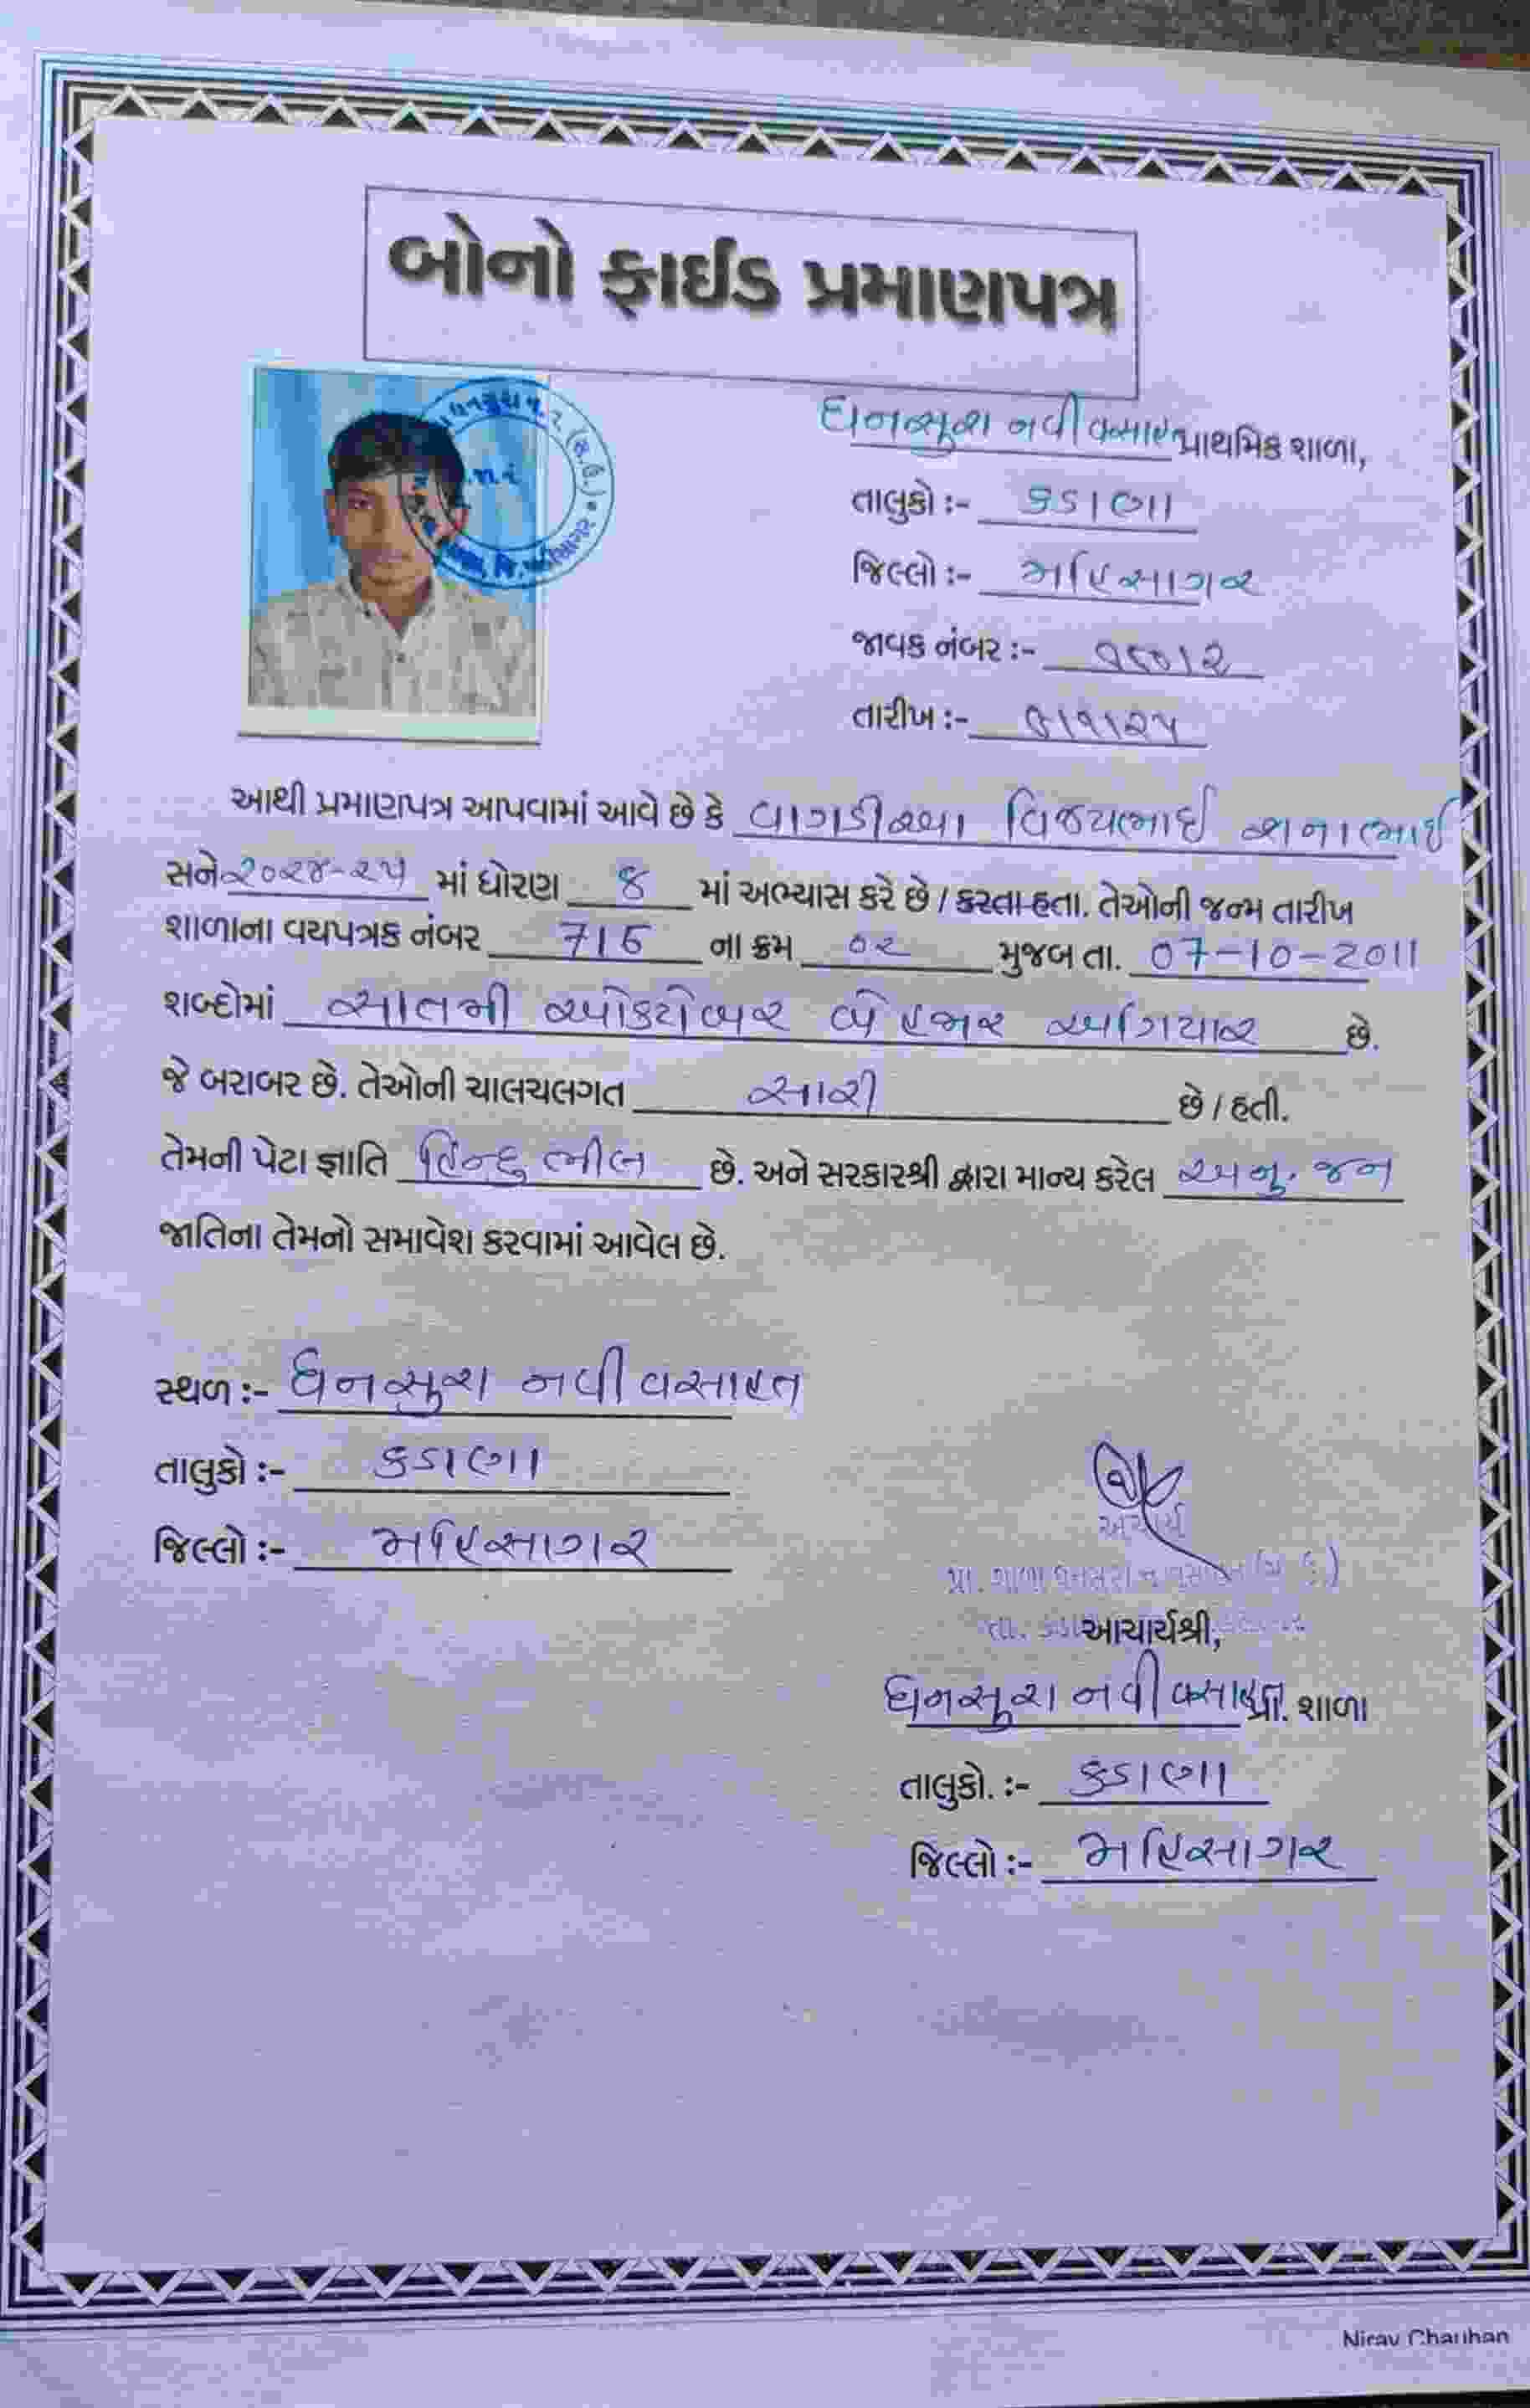 બોનો ફાઈડ પ્રમાણપત્ર
ધનસુરા નવી વસાહત પ્રાથમિક શાળા,
તાલુકો :- કડાણા
જિલ્લો :- મહિસાગર
જાવક નંબર :-
તારીખ :-
આથી પ્રમાણપત્ર આપવામાં આવે છે કે વાગડીયા વિજયભાઈ શનાભાઈ
સને ૨૦૨૪-૨૫ માં ધોરણ ૪ માં અભ્યાસ કરે છે / કરતા હતા. તેઓની જન્મ તારીખ
શાળાના વયપત્રક નંબર 716 ના ક્રમ ૦૨ મુજબ તા. 07-10-2011
શબ્દોમાં સાતમી ઓક્ટોબર બે હજાર અગિયાર છે.
જે બરાબર છે. તેઓની ચાલચલગત સારી છે / હતી.
તેમની પેટા જ્ઞાતિ હિન્દુ ભીલ છે. અને સરકારશ્રી દ્વારા માન્ય કરેલ અનુ. જન
જાતિના તેમનો સમાવેશ કરવામાં આવેલ છે.
સ્થળ :- ધનસુરા નવી વસાહત
તાલુકો :- કડાણા
જિલ્લો :- મહિસાગર
આચાર્ય
આચાર્યશ્રી,
ધનસુરા નવી વસાહત પ્રા. શાળા
તાલુકો. :- કડાણા
જિલ્લો :- મહિસાગર
Nirav Chauhan